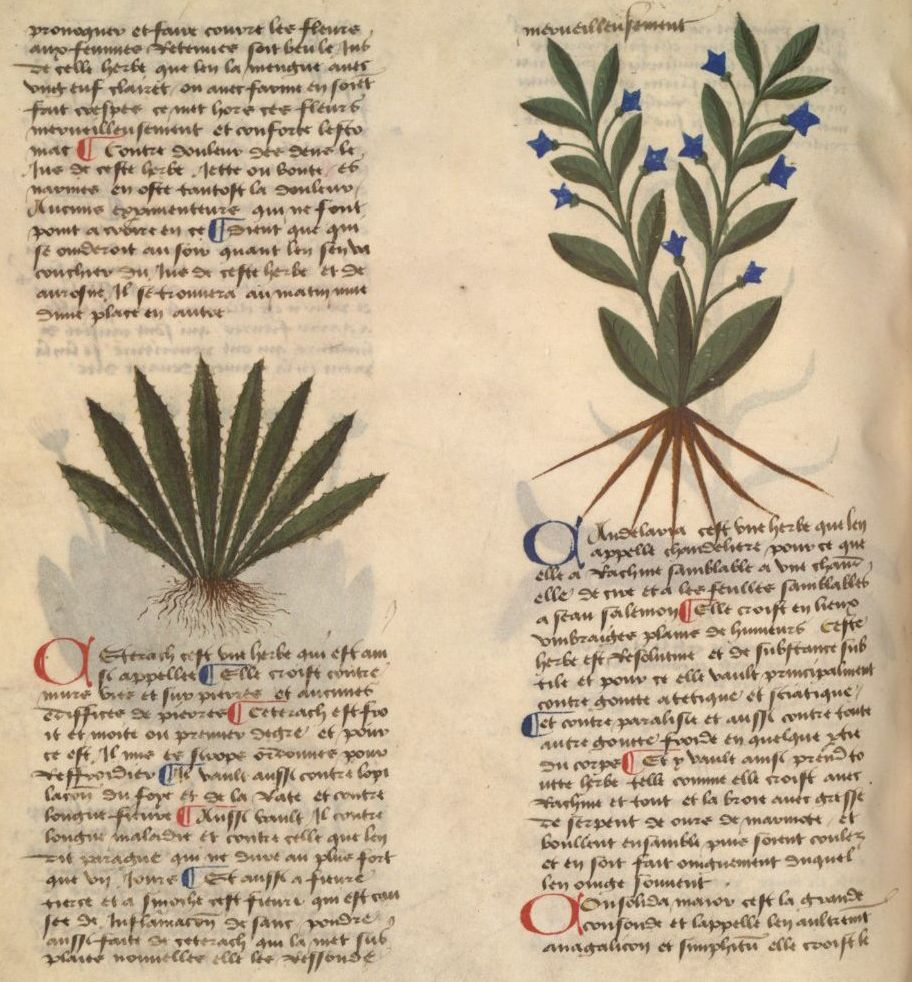 prouoquer et faire courre les fleurs
aux femmes Retenues soit beu le Jus
de celle herbe que len la mengue auec
vng euf clairet ou auec farine en soiet
fait crespes ce met hors ces fleurs
merueilleusement et conforte lesto
mac ¶ Contre douleur des dens le
Jus de ceste herbe Jette ou boute es
narines en oste tantost la douleur
Aucuns expimenteurs qui ne sont
point a croire en ce ¶ Dient que qui
se ouideroit au soir quant len sen va
couchier du Jus de ceste herbe et de
aurosne Il se trouuera au matin mue
dune place en autre
Ceterach cest vne herbe qui est ain
si appellee ¶ Elle croist contre
murs vies et sur pierres et aucunes
ediffices de pierres ¶ Ceterach est fro
it et moite ou premier degre et pour
ce est Il mis es sirops ordonnes pour
Reffroidier ¶ Il vault aussi contre lopi
lacon du foye et de la Rate et contre
longue fieure ¶ Aussi vault Il contre
longue maladie et contre celle que len
dit qui ne dure au plus fort
que vij Jours ¶ Et aussi a fieure
tierce et a sinoche cest fieure qui est cau
see de Inflamacon de sanc pouldre
aussi faite de ceterach qui la met sus
plaies nouuelles elle les Ressoude
merueilleusement
Candelaria cest vne herbe que len
appelle chandeliere pour ce que
elle a Rachine samblable a vne chan
elle de cire et a les feuilles samblables
a seau salemon ¶ Elle croist en lieux
vmbraiges plains de humeurs Ceste
herbe est Resolutiue et de substance sub
tile et pour ce elle vault principalment
contre goutte atetique et sciatique
¶ et contre paralisie et aussi contre toute
autre goutte froide en quelque ptie
du corps ¶ Et y vault ainsi prend to
utte herbe telle comme elle croist auec
Rachine et tout et la broie auec gresse
de serpent de ours de marmote et
boullent ensamble puis soient coulez
et en soit fait oinguement duquel
len oinge souuent
Consolida maior cest la grande
consoude et lappelle len aultremt
anagalicon et simphitu elle croist le